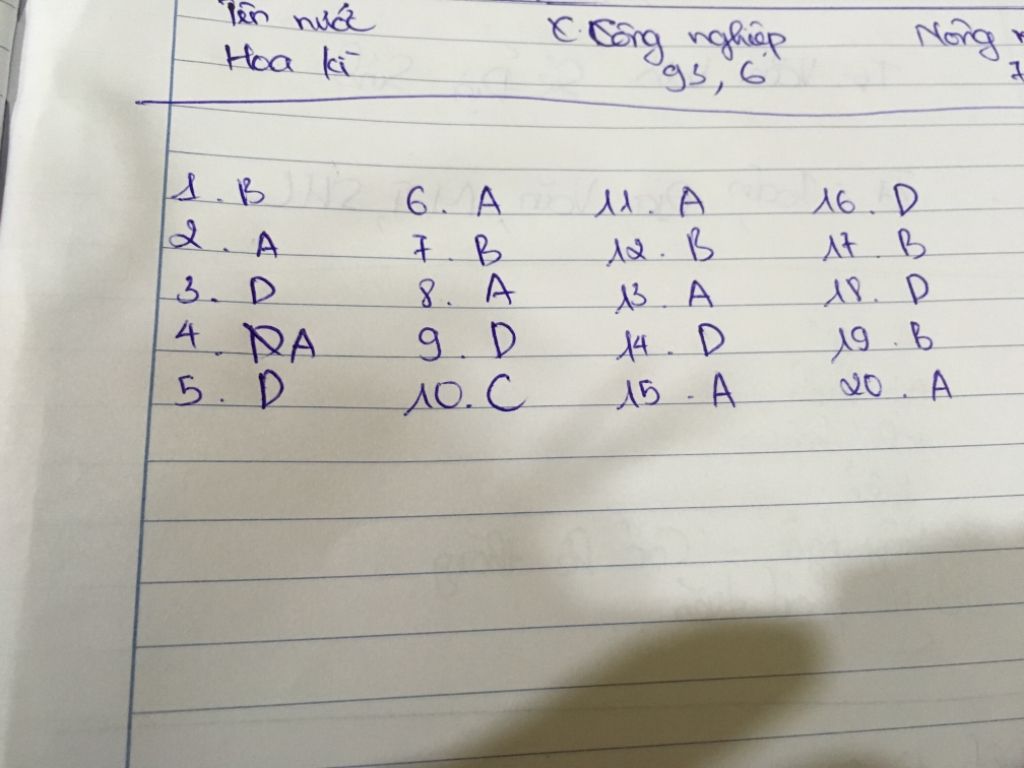 Tên nước Công nghiệp Nông
Hoa kì 93,6 7
1. B 6. A 11. A 16. D
2. A 7. B 12. B 17. B
3. D 8. A 13. A 18. D
4. A 9. D 14. D 19. B
5. D 10. C 15. A 20. A